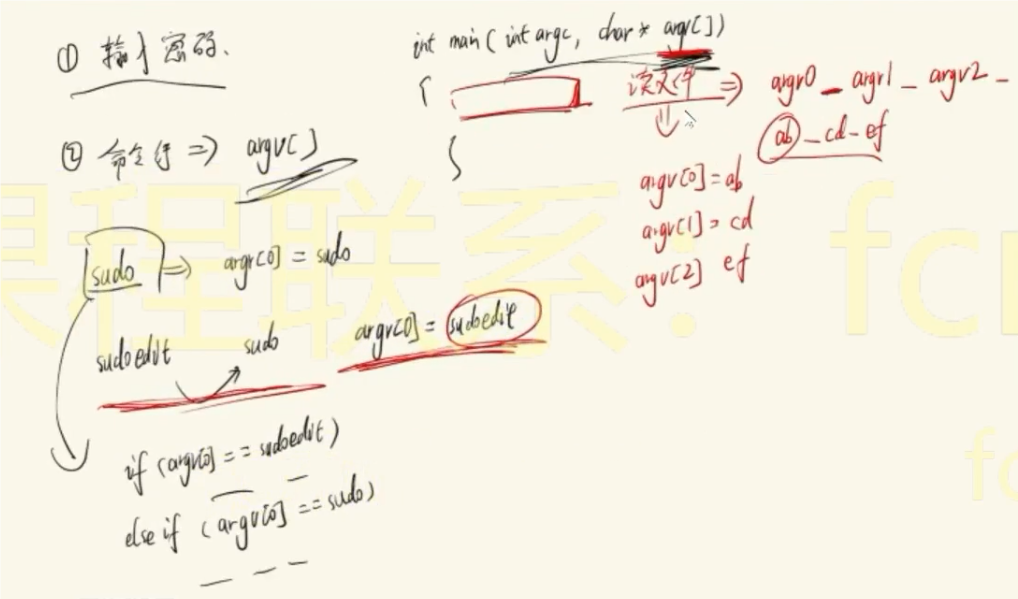 ① 输入密码.
② 命令行 => argv[]
sudo => argv[0] = sudo
sudoedit sudo argv[0] = sudoedit
if (argv[0] == sudoedit)
else if (argv[0] == sudo)
int main( int argc, char* argv[])
{
}
读文件 => argv0 _ argv1 _ argv2 _
ab _ cd _ ef
argv[0] = ab
argv[1] = cd
argv[2] ef
课程联系: fcr
fc